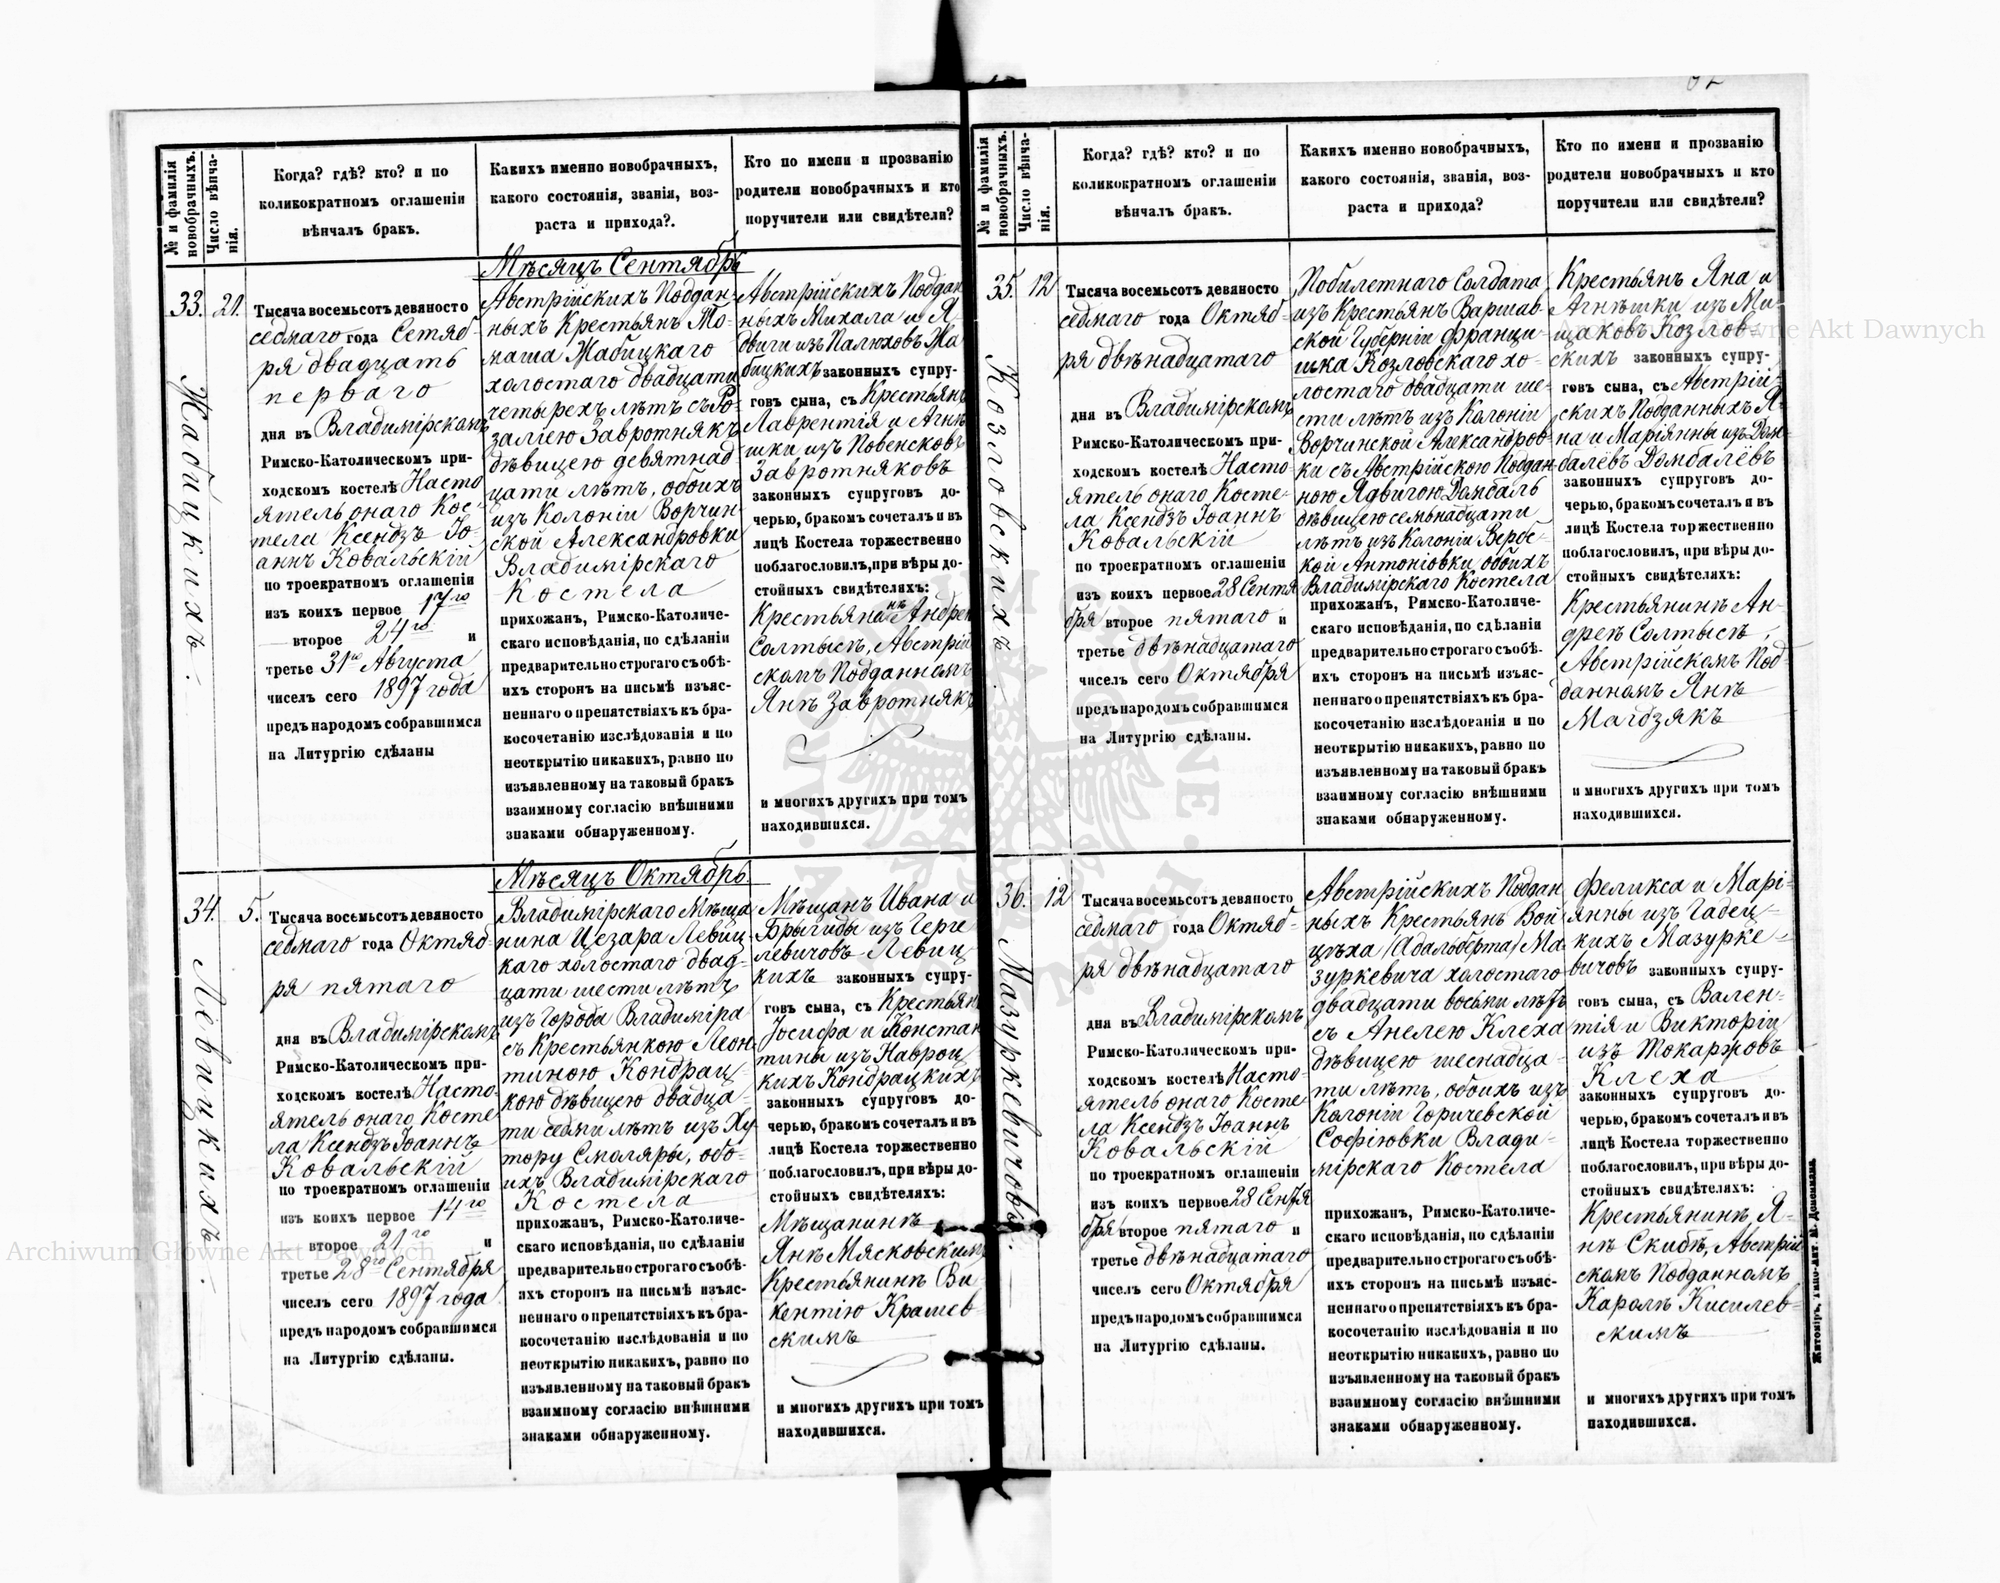 № и фамилія новобрачныхъ.
Число вѣнчанія.
Когда? гдѣ? кто? и по
коликократномъ оглашеніи
вѣнчалъ бракъ.
Какихъ именно новобрачныхъ,
какого состоянія, званія, воз-
раста и прихода?.
Кто по имени и прозванію
родители новобрачныхъ и кто
поручители или свидѣтели?
Мѣсяцъ Сентябрь
33.
21.
Жабицкихъ.
Тысяча восемьсотъ девяносто
седмаго года Сетяб-
ря двадцать
перваго
дня въ Владимірскомъ
Римско-Католическомъ при-
ходскомъ костелѣ Насто
ятель онаго Кос-
тела Ксендзъ Іо-
аннъ Ковальскій
по троекратномъ оглашеніи
изъ коихъ первое 17го
второе 24го и
третье 31го Августа
чиселъ сего 1897 года
предъ народомъ собравшимся
на Литургію сдѣланы
Австрійскихъ Поддан-
ныхъ Крестьянъ То-
маша Жабицкаго
холостаго двадцати
четырехъ лѣтъ съ Ро-
заліею Завротнякъ
дѣвицею девятнад
цати лѣтъ, обоихъ
изъ Колоніи Ворчин-
ской Александровки
Владимірскаго
Костела
прихожанъ, Римско-Католиче-
скаго исповѣданія, по сдѣланіи
предварительно строгаго съ обѣ-
ихъ сторонъ на письмѣ изъяс-
неннаго о препятствіяхъ къ бра-
косочетанію изслѣдованія и по
неоткрытію никакихъ, равно по
изъявленному на таковый бракъ
взаимному согласію внѣшними
знаками обнаруженному.
Австрійскихъ Поддан
ныхъ Михала и Я-
двиги изъ Палюховъ Жа
бицкихъ законныхъ супру-
говъ сына, съ Крестьянъ
Лаврентія и Агнѣ
шки изъ Повенсковъ
Завротняковъ
законныхъ супруговъ до-
черью, бракомъ сочеталъ и въ
лицѣ Костела торжественно
поблагословилъ, при вѣры до-
стойныхъ свидѣтеляхъ:
Крестьянинѣ Андреѣ
Солтысѣ, Австрій
скомъ Подданномъ
Янѣ Завротнякѣ
и многихъ другихъ при томъ
находившихся.
Мѣсяцъ Октябрь.
34.
5.
Левицкихъ.
Тысяча восемьсотъ девяносто
седмаго года Октяб-
ря пятаго
дня въ Владимірскомъ
Римско-Католическомъ при-
ходскомъ костелѣ Насто-
ятель онаго Косте
ла Ксендзъ Іоаннъ
Ковальскій
по троекратномъ оглашеніи
изъ коихъ первое 14го
второе 21го и
третье 28го Сентября
чиселъ сего 1897 года
предъ народомъ собравшимся
на Литургію сдѣланы.
Владимірскаго Мѣща
нина Цезара Левиц-
каго холостаго двад-
цати шести лѣтъ
изъ города Владиміра
съ Крестьянкою Леон-
тиною Кондрац-
кою дѣвицею двадца-
ти седми лѣтъ изъ Ху
тору Смоляры, обо-
ихъ Владимірскаго
Костела
прихожанъ, Римско-Католиче-
скаго исповѣданія, по сдѣланіи
предварительно строгаго съ обѣ-
ихъ сторонъ на письмѣ изъяс-
неннаго о препятствіяхъ къ бра-
косочетанію изслѣдованія и по
неоткрытію никакихъ, равно по
изъявленному на таковый бракъ
взаимному согласію внѣшними
знаками обнаруженному.
Мѣщанъ Ивана и
Брыгиды изъ Герге
левичовъ Левиц
кихъ законныхъ супру-
говъ сына, съ Крестьян
Іосифа и Констан
тины изъ Навроц
кихъ Кондрацкихъ
законныхъ супруговъ до-
черью, бракомъ сочеталъ и въ
лицѣ Костела торжественно
поблагословилъ, при вѣры до-
стойныхъ свидѣтеляхъ:
Мѣщанинѣ
Янѣ Мясковскимъ
Крестьянинѣ Ви-
кентію Крашев-
скимъ
и многихъ другихъ при томъ
находившихся.
№ и фамилія новобрачныхъ.
Число вѣнчанія.
Когда? гдѣ? кто? и по
коликократномъ оглашеніи
вѣнчалъ бракъ.
Какихъ именно новобрачныхъ,
какого состоянія, званія, воз-
раста и прихода?
Кто по имени и прозванію
родители новобрачныхъ и кто
поручители или свидѣтели?
35.
12
Козловскихъ.
Тысяча восемьсотъ девяносто
седмаго года Октяб-
ря двѣнадцатаго
дня въ Владимірскомъ
Римско-Католическомъ при-
ходскомъ костелѣ Насто-
ятель онаго Косте-
ла Ксендзъ Іоаннъ
Ковальскій
по троекратномъ оглашеніи
изъ коихъ первое 28 Сентя
бря второе пятаго и
третье двѣнадцатаго
чиселъ сего Октября
предъ народомъ собравшимся
на Литургію сдѣланы.
Побилетнаго Солдата
изъ Крестьянъ Варшав-
ской Губерніи Франци-
шка Козловскаго хо-
лостаго двадцати ше-
сти лѣтъ изъ Колоніи
Ворчинской Александров-
ки съ Австрійскою Поддан
ною Ядвигою Домбаль
дѣвицею семьнадцати
лѣтъ изъ Колоніи Вербе-
кой Антоніовки, обоихъ
Владимірскаго Костела
прихожанъ, Римско-Католиче-
скаго исповѣданія, по сдѣланіи
предварительно строгаго съ обѣ-
ихъ сторонъ на письмѣ изъяс-
неннаго о препятствіяхъ къ бра-
косочетанію изслѣдованія и по
неоткрытію никакихъ, равно по
изъявленному на таковый бракъ
взаимному согласію внѣшними
знаками обнаруженному.
Крестьянъ Яна и
Агнѣшки изъ Ми-
щаковъ Козлов-
скихъ законныхъ супру-
говъ сына, съ Австрій-
скихъ Подданныхъ Я-
на и Маріянны изъ Дом-
балёвъ Домбалёвъ
законныхъ супруговъ до-
черью, бракомъ сочеталъ и въ
лицѣ Костела торжественно
поблагословилъ, при вѣры до-
стойныхъ свидѣтеляхъ:
Крестьянинѣ Ан-
дреѣ Солтысѣ,
Австрійскомъ Под-
данномъ Янѣ
Магдзякѣ
и многихъ другихъ при томъ
находившихся.
36.
12
Мазуркевичовъ.
Тысяча восемьсотъ девяносто
седмаго года Октяб-
ря двѣнадцатаго
дня въ Владимірскомъ
Римско-Католическомъ при-
ходскомъ костелѣ Насто-
ятель онаго Косте
ла Ксендзъ Іоаннъ
Ковальскій
по троекратномъ оглашеніи
изъ коихъ первое 28 Сентя
бря второе пятаго и
третье двѣнадцатаго
чиселъ сего Октября
предъ народомъ собравшимся
на Литургію сдѣланы.
Австрійскихъ Поддан
ныхъ Крестьянъ Вой
цѣха (Адальберта) Ма-
зуркевича холостаго
двадцати восьми лѣтъ
съ Анелею Клеха
дѣвицею шеснадца-
ти лѣтъ, обоихъ изъ
Колоніи Горичевской
Софіювки Влади-
мірскаго Костела
прихожанъ, Римско-Католиче-
скаго исповѣданія, по сдѣланіи
предварительно строгаго съ обѣ-
ихъ сторонъ на письмѣ изъяс-
неннаго о препятствіяхъ къ бра-
косочетанію изслѣдованія и по
неоткрытію никакихъ, равно по
изъявленному на таковый бракъ
взаимному согласію внѣшними
знаками обнаруженному.
Феликса и Марі-
янны изъ Гадец-
кихъ Мазурке-
вичовъ законныхъ супру-
говъ сына, съ Вален-
тія и Викторіи
изъ Токаржовъ
Клеха
законныхъ супруговъ до-
черью, бракомъ сочеталъ и въ
лицѣ Костела торжественно
поблагословилъ, при вѣры до-
стойныхъ свидѣтеляхъ:
Крестьянинѣ Я-
нѣ Скибѣ, Австрій
скомъ Подданномъ
Каролѣ Кисилев-
скимъ
и многихъ другихъ при томъ
находившихся.
Житоміръ, Типо-Лит. М. Дененмана
Archiwum Główne Akt Dawnych
Archiwum Główne Akt Dawnych